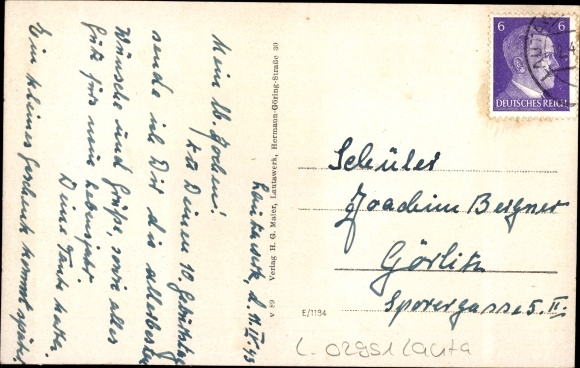 Lautawerk, d. 11.IV.43
Mein lb. Jochen!
Zu Deinem 10. Geburtstag
sende ich Dir die allerbesten
Wünsche und Grüße, sowie alles
Gute fürs neue Lebensjahr
Deine Tante Herta.
Ein kleines Geschenk kommt später.
v 89 Verlag H. G. Maier, Lautawerk, Hermann-Göring-Straße 30
6 6
DEUTSCHES REICH
Schüler
Joachim Bergner
Görlitz
Sporergasse 5. II.
E/1184
L. 02991 Lauta